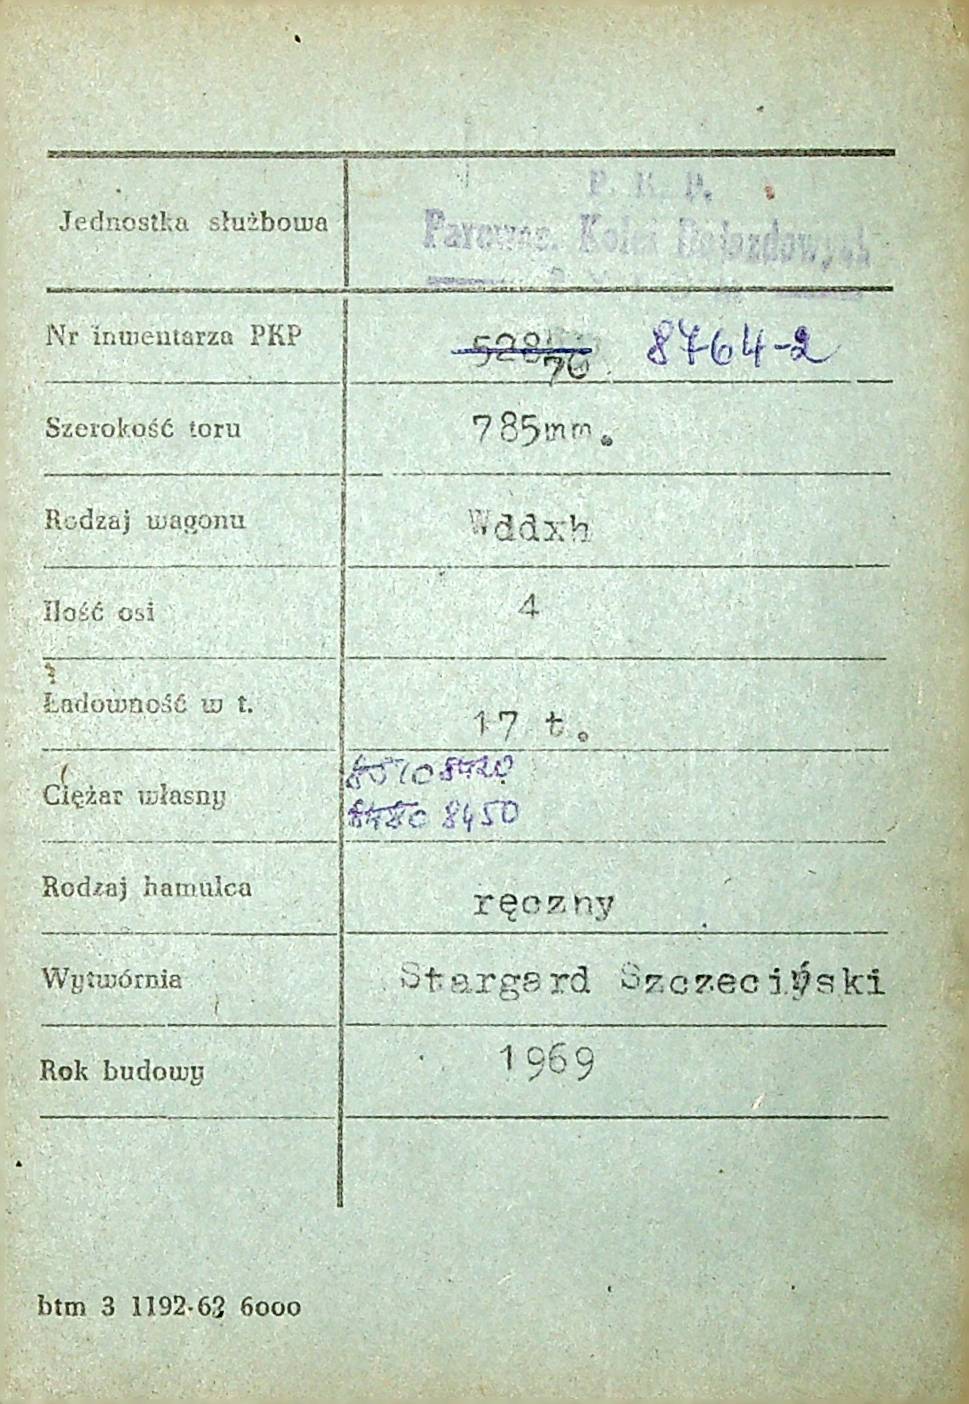 P. K. P.
Jednostka służbowa
Parowoz. Kolei Dojazdowych
Nr inwentarza PKP 8764-2
76
Szerokość toru 785mm.
Rodzaj wagonu Wddxh
Ilość osi 4
Ładowność w t. 17 t.
8510 8420
Ciężar własny
8480 8450
Rodzaj hamulca ręczny
Wytwórnia Stargard Szczeciński
Rok budowy 1969
btm 3 1192-63 6000